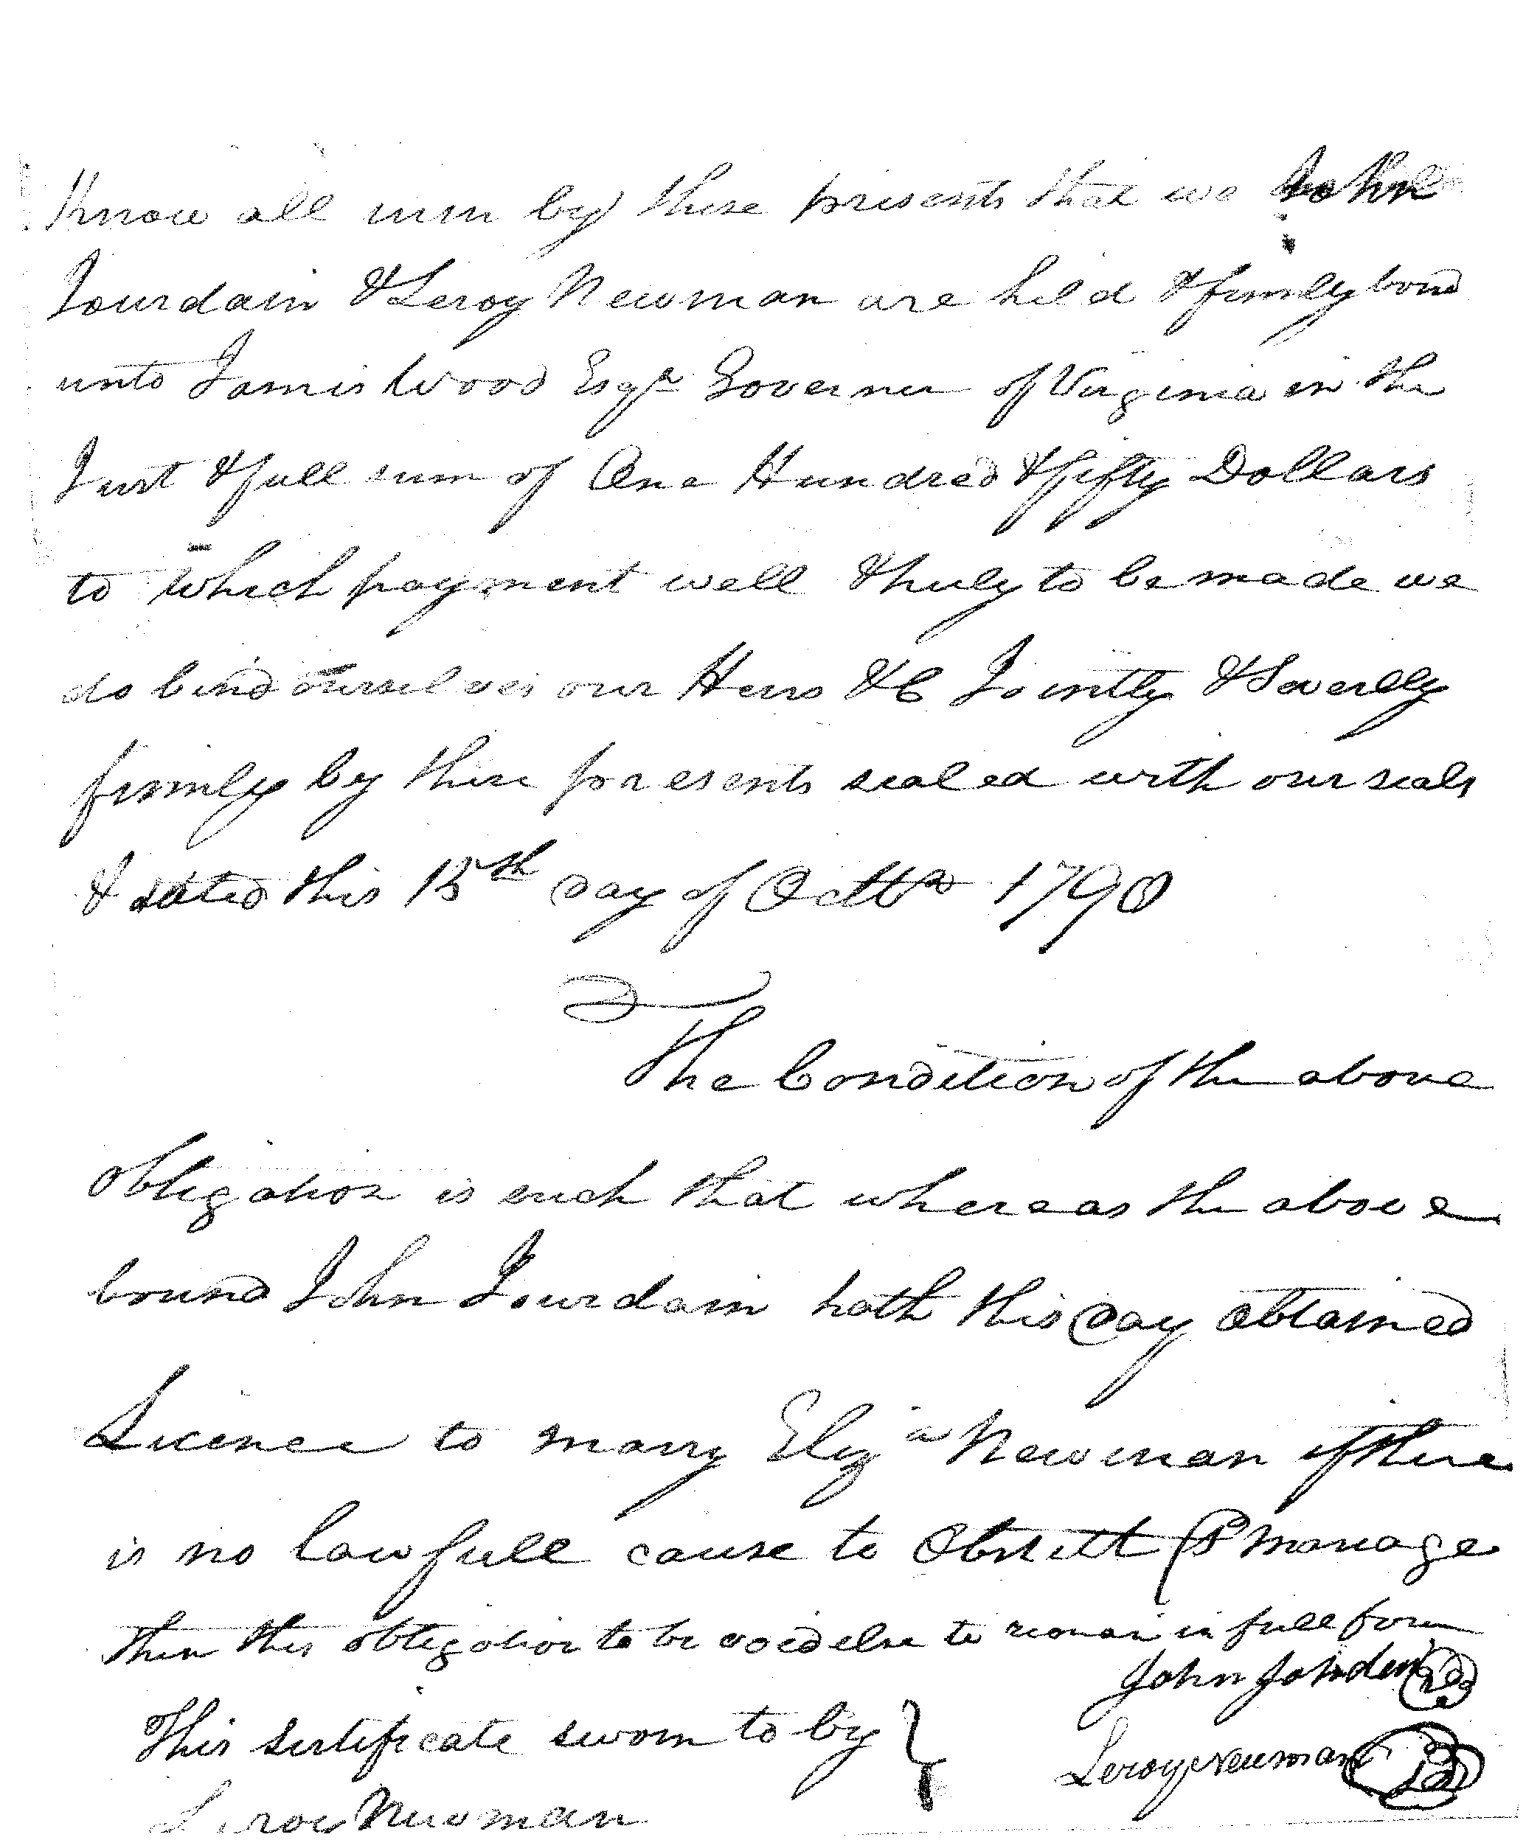 Know all men by these presents that we John
Jourdain & Leroy Newman are held & firmly bond
unto James Wood Esqr Governer of Virginia in the
Just & full sum of One Hundred & fifty Dollars
to which payment well & truly to be made we
do bind ourselves our Heirs &C Jointly & Severlly
firmly by these presents sealed with our seals
& dated this 15th day of Octbr 1790
The Condition of the above
obligation is such that whereas the above
bound John Jourdain hath this day obtained
Licence to marry Eliza Newman if there
is no lawfull cause to Obstrctt sd Marage
then this obligation to be void else to remain in full force
John Jordan
This sertificate sworn to by
Leroy Newman
Leroy Newman